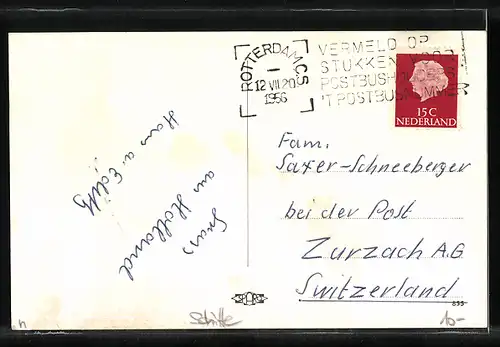 ROTTERDAM CS
12 VII 20
1956
VERMELD OP
STUKKEN VOOR
POSTBUSHOUDERS
'T POSTBUSNUMMER
15 C
NEDERLAND
Gruss
aus Holland
Han u. Edith
Fam.
Saxer-Schneeberger
bei der Post
Zurzach A.G
Switzerland
SPARO
833
Schiffe
10-